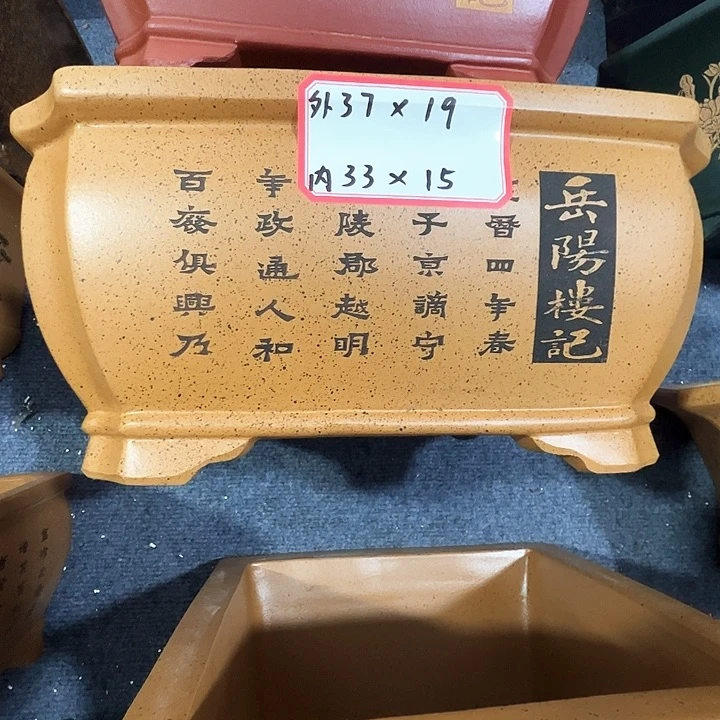 外37×19
内33×15
岳陽樓記
曆四年春
子京謫守
陵郡越明
年政通人和
百廢俱興乃